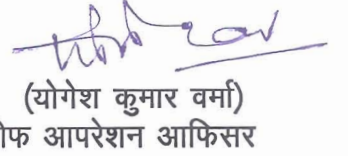 (योगेश कुमार वर्मा)
आपरेशन आफिसर